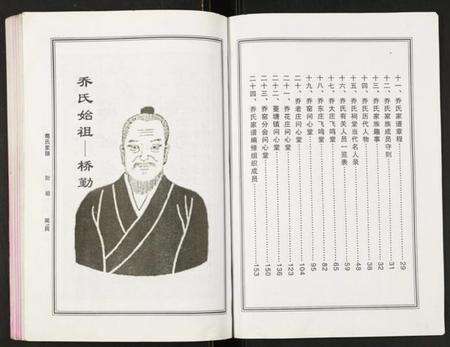 十一、乔氏家谱章程……29
十二、乔氏家族成员守则……31
十三、乔氏家族趣事……32
十四、乔氏历代人物……38
十五、乔氏祠堂当代名人录……48
十六、乔氏有关人员一览表……59
十七、乔大庄飞鸣堂……65
十八、乔东庄飞鸣堂……82
十九、乔窑问心堂……95
二十、乔老庄问心堂……104
二十一、乔花庄问心堂……123
二十二、臺塘镇问心堂……136
二十三、乔窑分会问心堂……150
二十四、乔氏家谱编修组织成员……153
乔氏始祖 桥勤
喬氏家譜